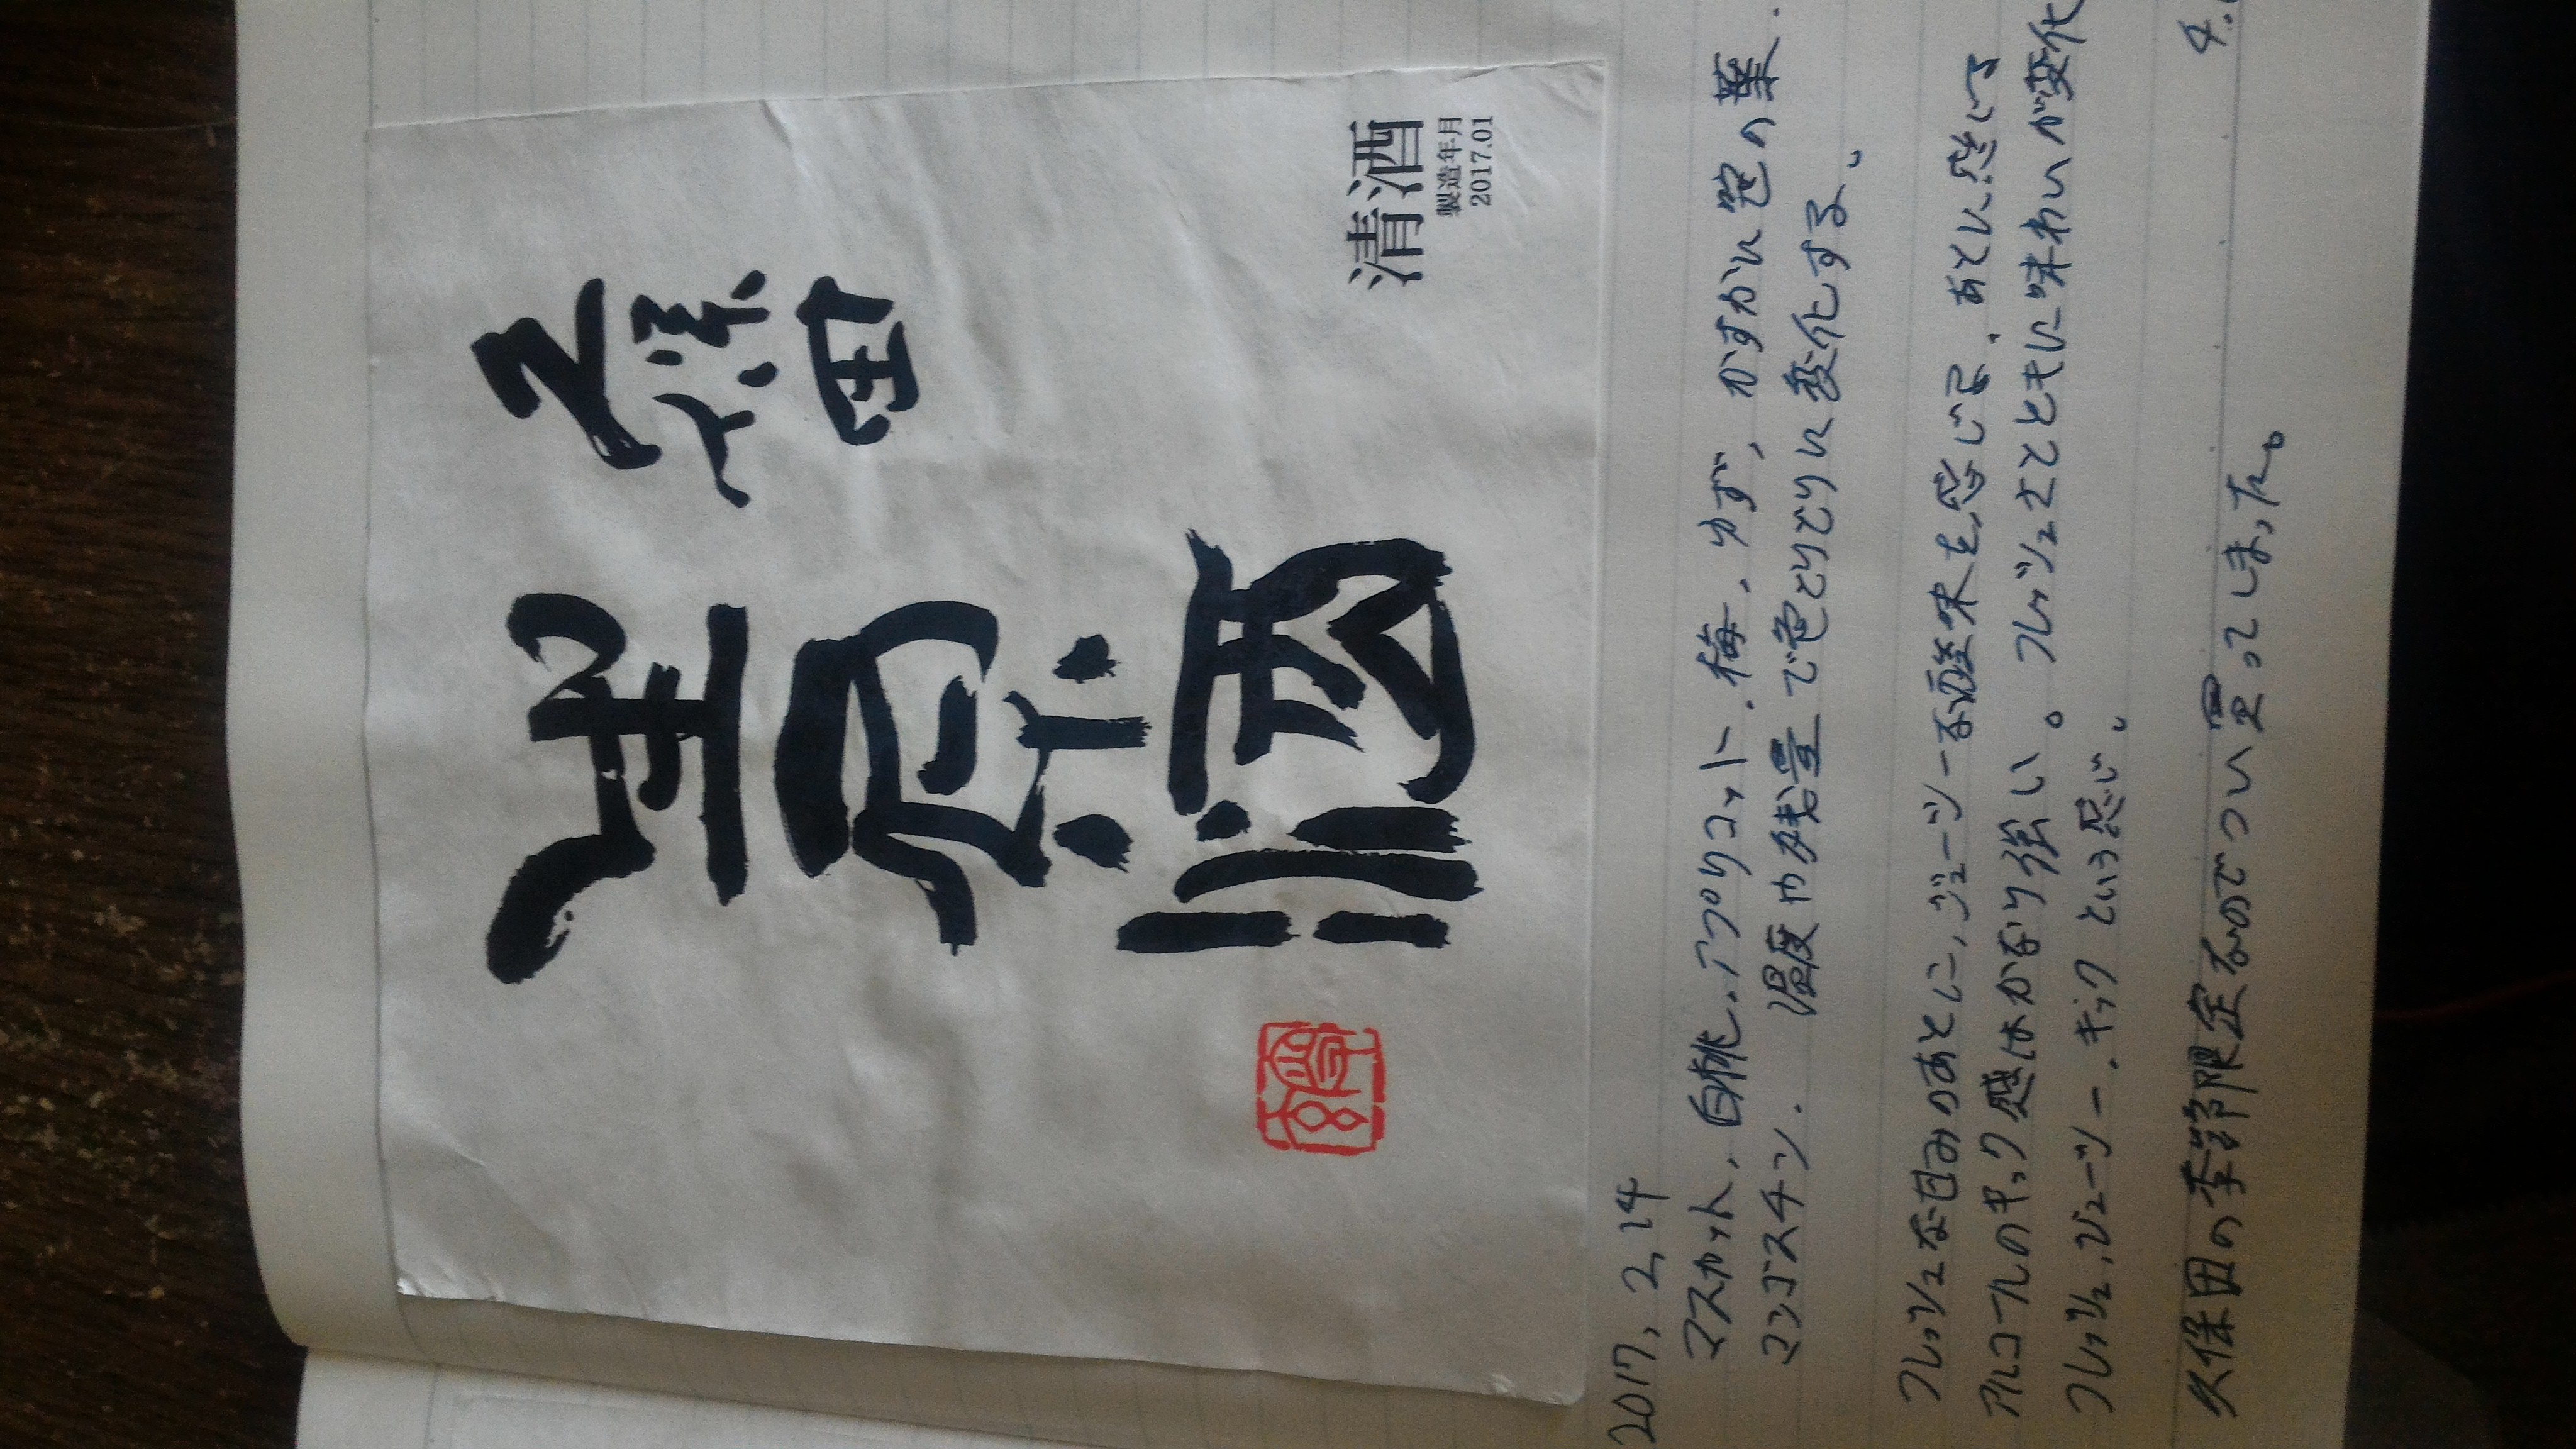 久保田
生原酒
清酒
製造年月
2017.01
2017, 2, 14
マスカット, 白桃, アプリコット, 梅, ゆず, かすかに笹の葉.
マンゴスチン. 温度や残量で色とりどりに変化する。
フレッシュな甘みのあとに, ジューシーな酸味を感じる, あとに感じる
アルコールのキック感はかなり強い。フレッシュさとともに味わいが変化
フレッシュ, ジューシー, キック という感じ。
久保田の季節限定なのでつい買ってしまった。
4.